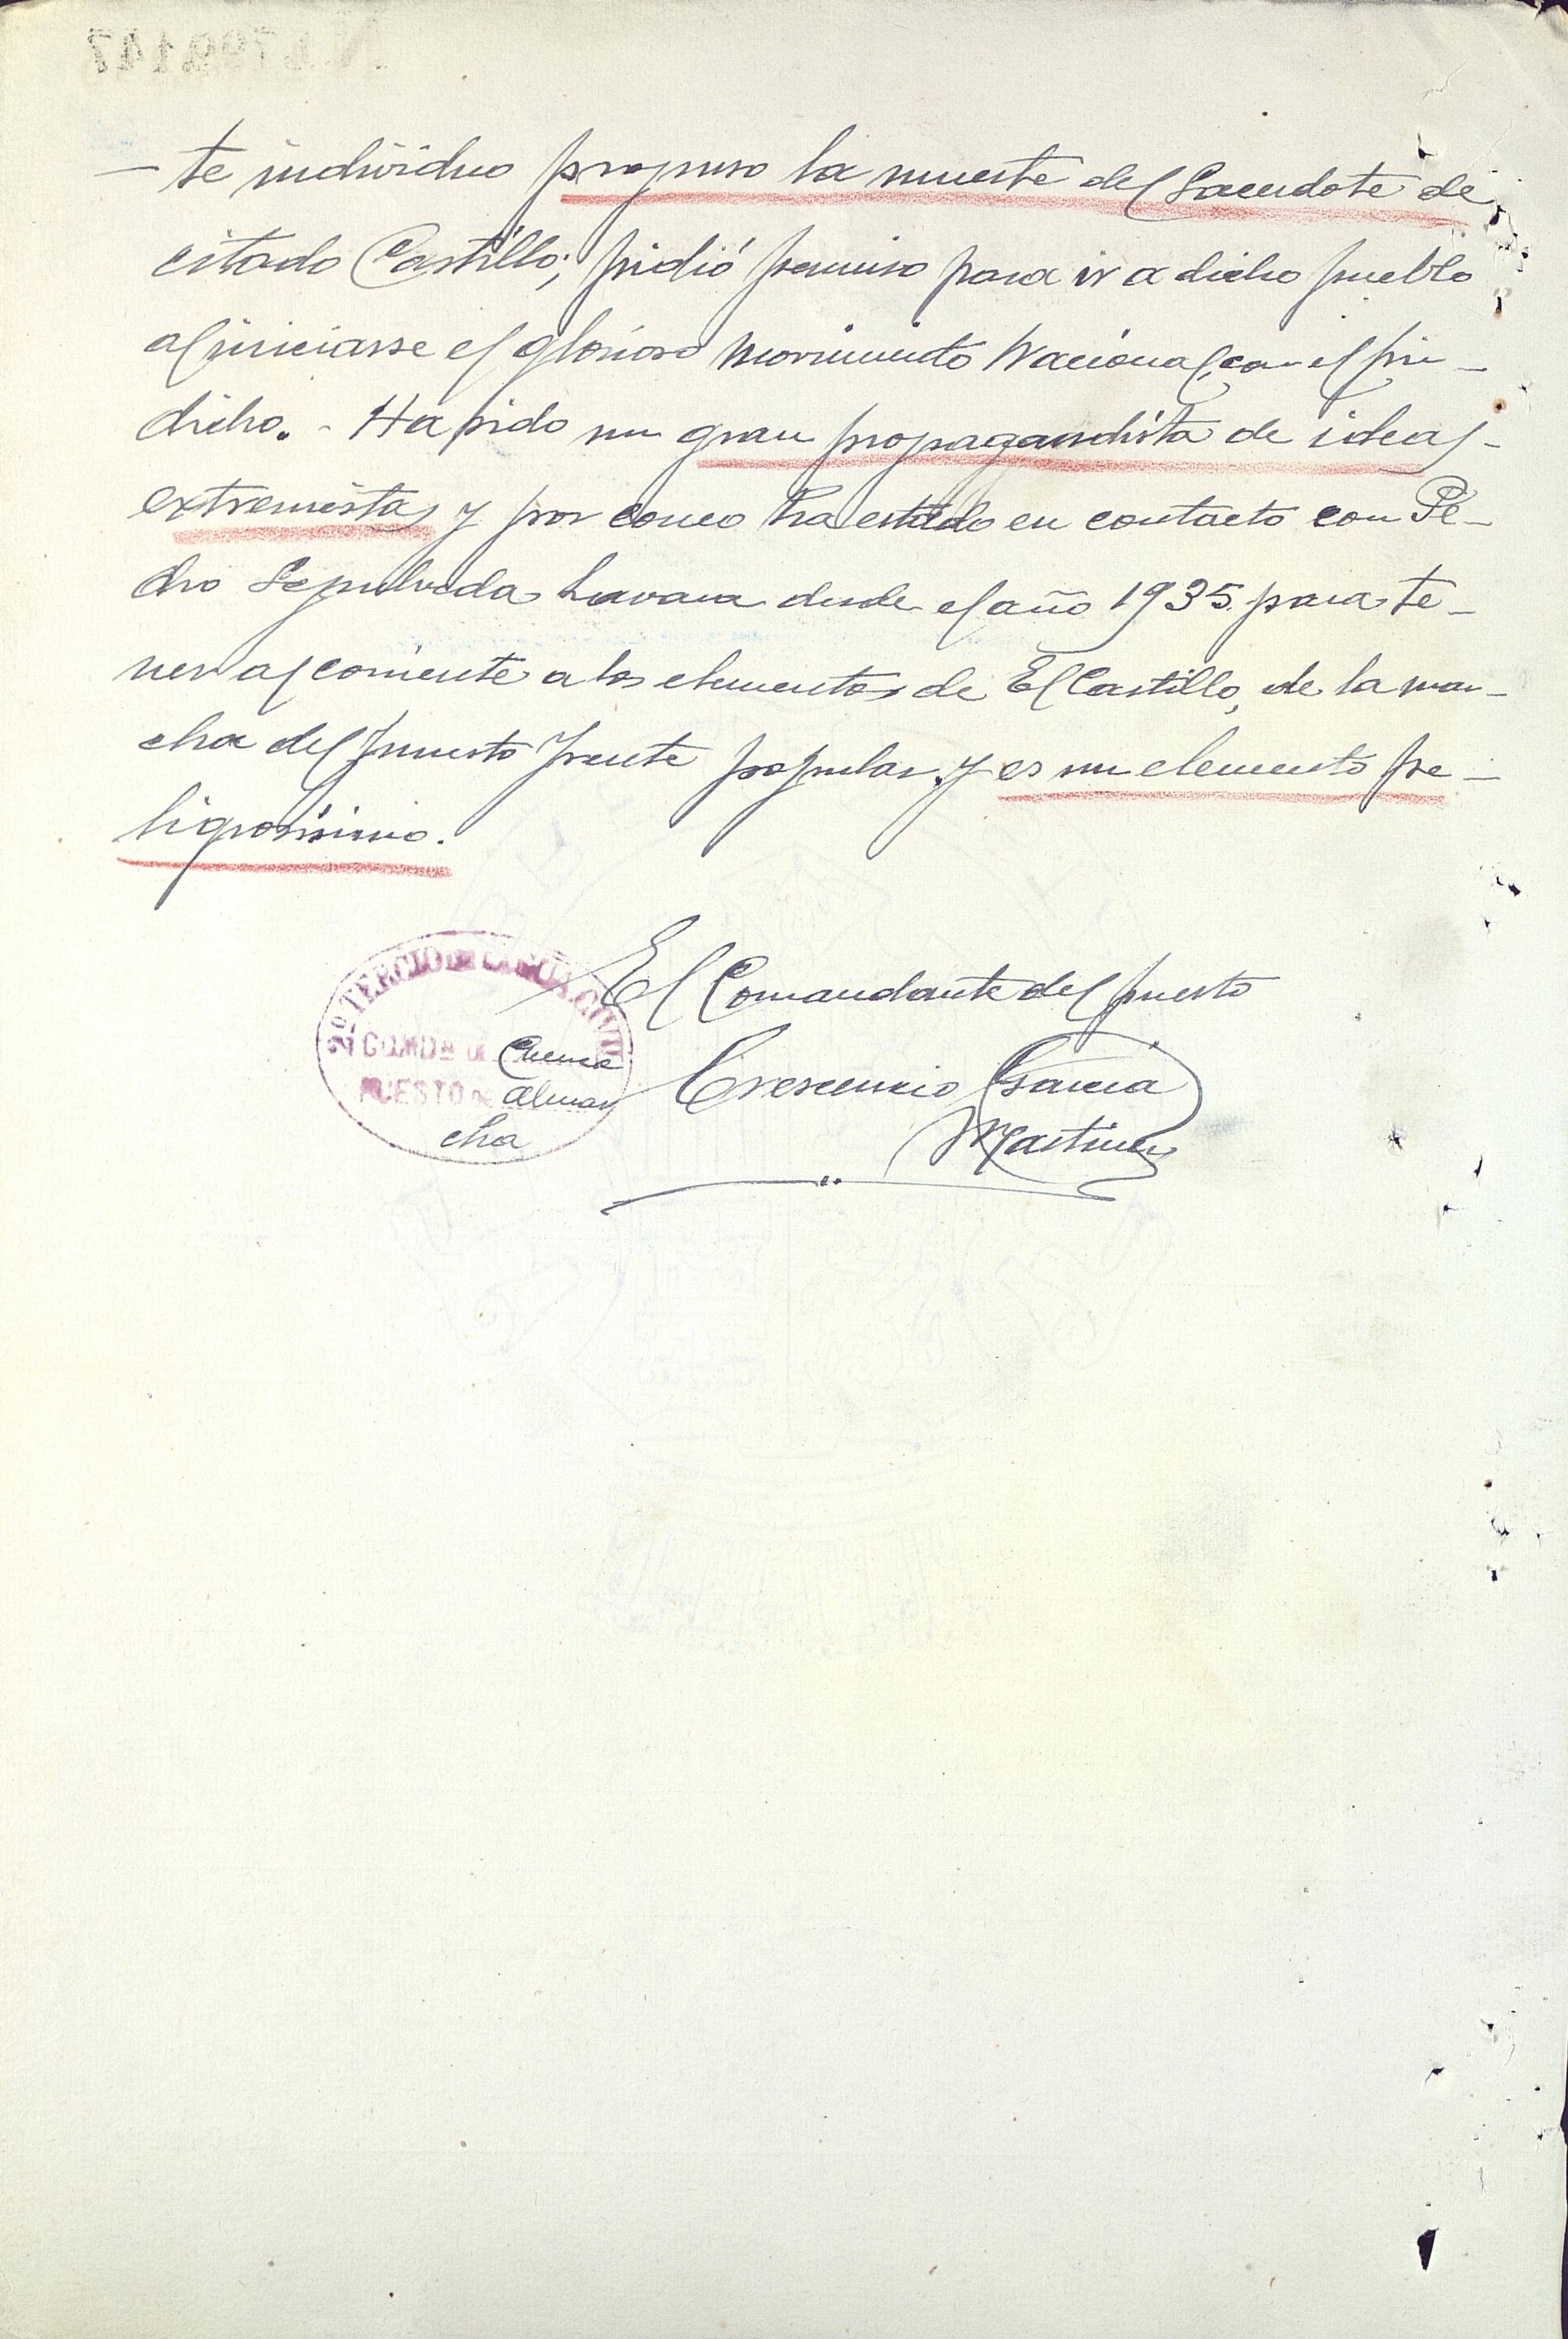 - te individuo propuso la muerte del Sacerdote de
citado Castillo; pidió permiso para ir a dicho pueblo
al iniciarse el glorioso Movimiento Nacional, con el fin -
dicho. - Ha sido un gran propagandista de ideas -
extremistas y por correo ha estado en contacto con Pe-
dro Sepulveda desde el año 1935. para te-
ner al corriente a los elementos de El Castillo, de la mar-
cha del funesto frente popular. y es un elemento pe-
ligrosisimo.
El Comandante del puesto
Crescencio Garcia
Martinez
2º TERCIO DE LA GUARDIA CIVIL
COMDª DE Cuenca
PUESTO DE Almar
cha